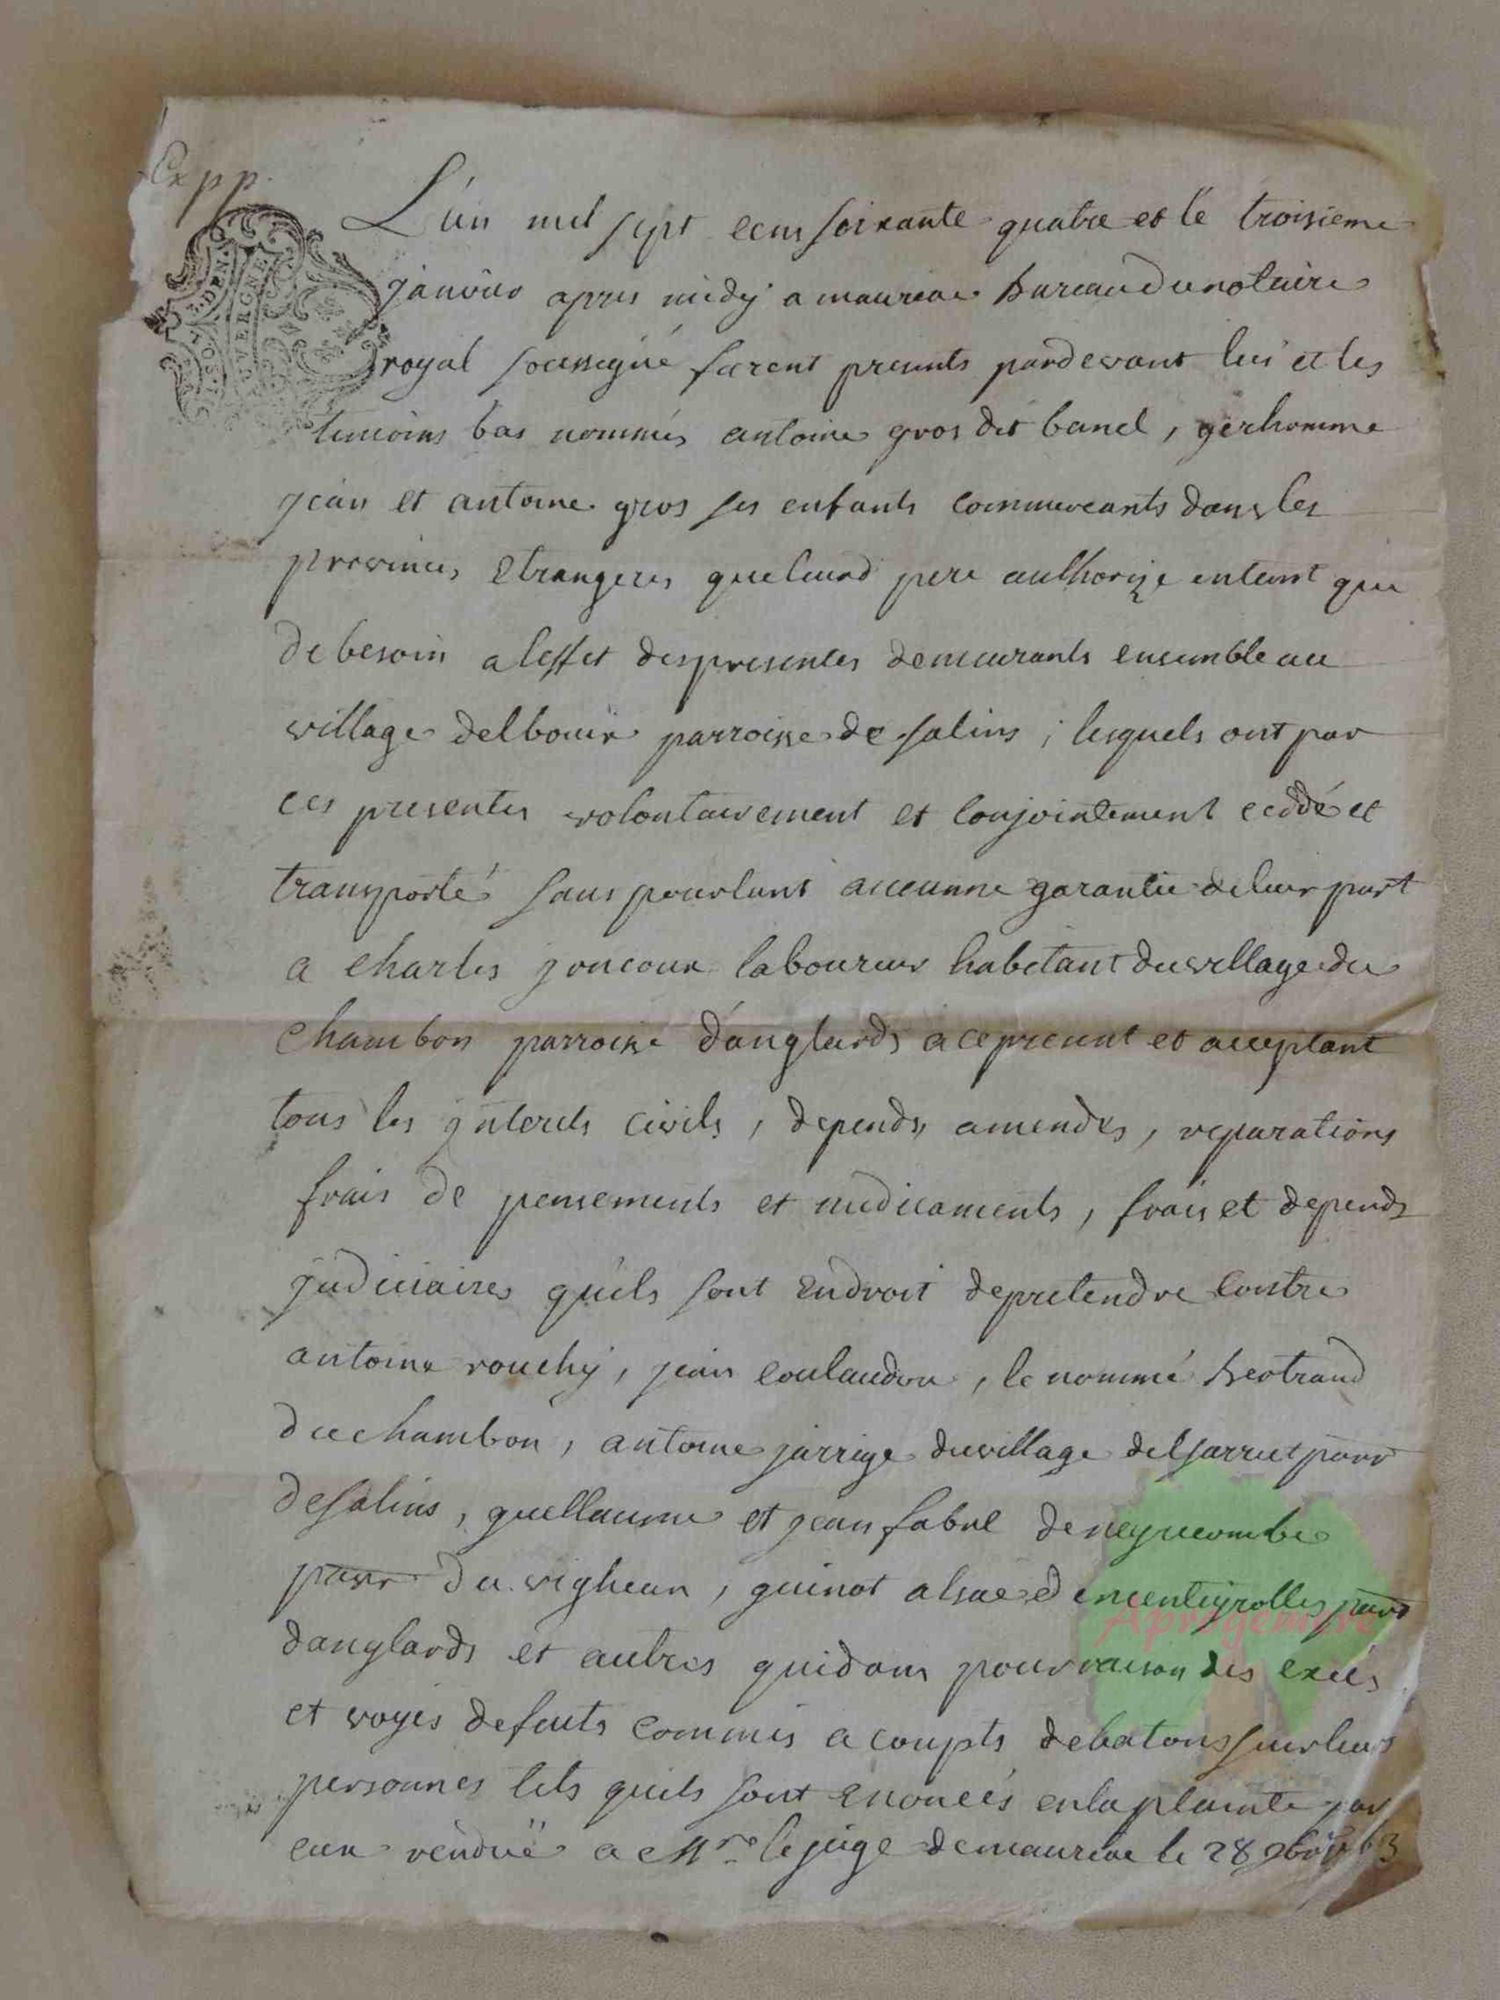 Expp.
L'an mil sept cens soixante quatre et le troisieme
janvier apres midy a mauriac Bureau du notaire
royal soussigné furent presents pardevant lui et les
temoins bas nommés antoine gros dit banel, gerhomme
jean et antoine gros ses enfants commerceants dans les
provinces etrangeres que leurd pere authorize entant que
de besoin a leffet des presentes demeurants ensemble au
village delbouix parroisse de salins ; lesquels ont par
ces presentes volontairement et conjointement ceddé et
transporté sans pourtant aucunne garantie de leur part
a charles joncoux laboureur habitant du village du
chambon parroisse d'anglards a ce present et acceptant
tous les jnterets civils, depends, amendes, reparations
frais de pensements et medicaments, frais et depends
judiciaires quils sont en droit de pretendre contre
antoine rouchy, jean coulaudon, le nommé Bertrand
du chambon, antoine jarrige du village del sarret parr
de salins, guillaume et jean fabre de neyrecombe
parr du vighean, guinot alsac d'encenteyrolles parr
danglards et autres quidams pour raison des excés
et voyes de faits commis a coupts de batons sur leurs
personnes tels quils sont enoncés en la plainte par
eux rendue a Mre le juge de mauriac le 28 9bre 63
AUVERGNE
Aprogemere